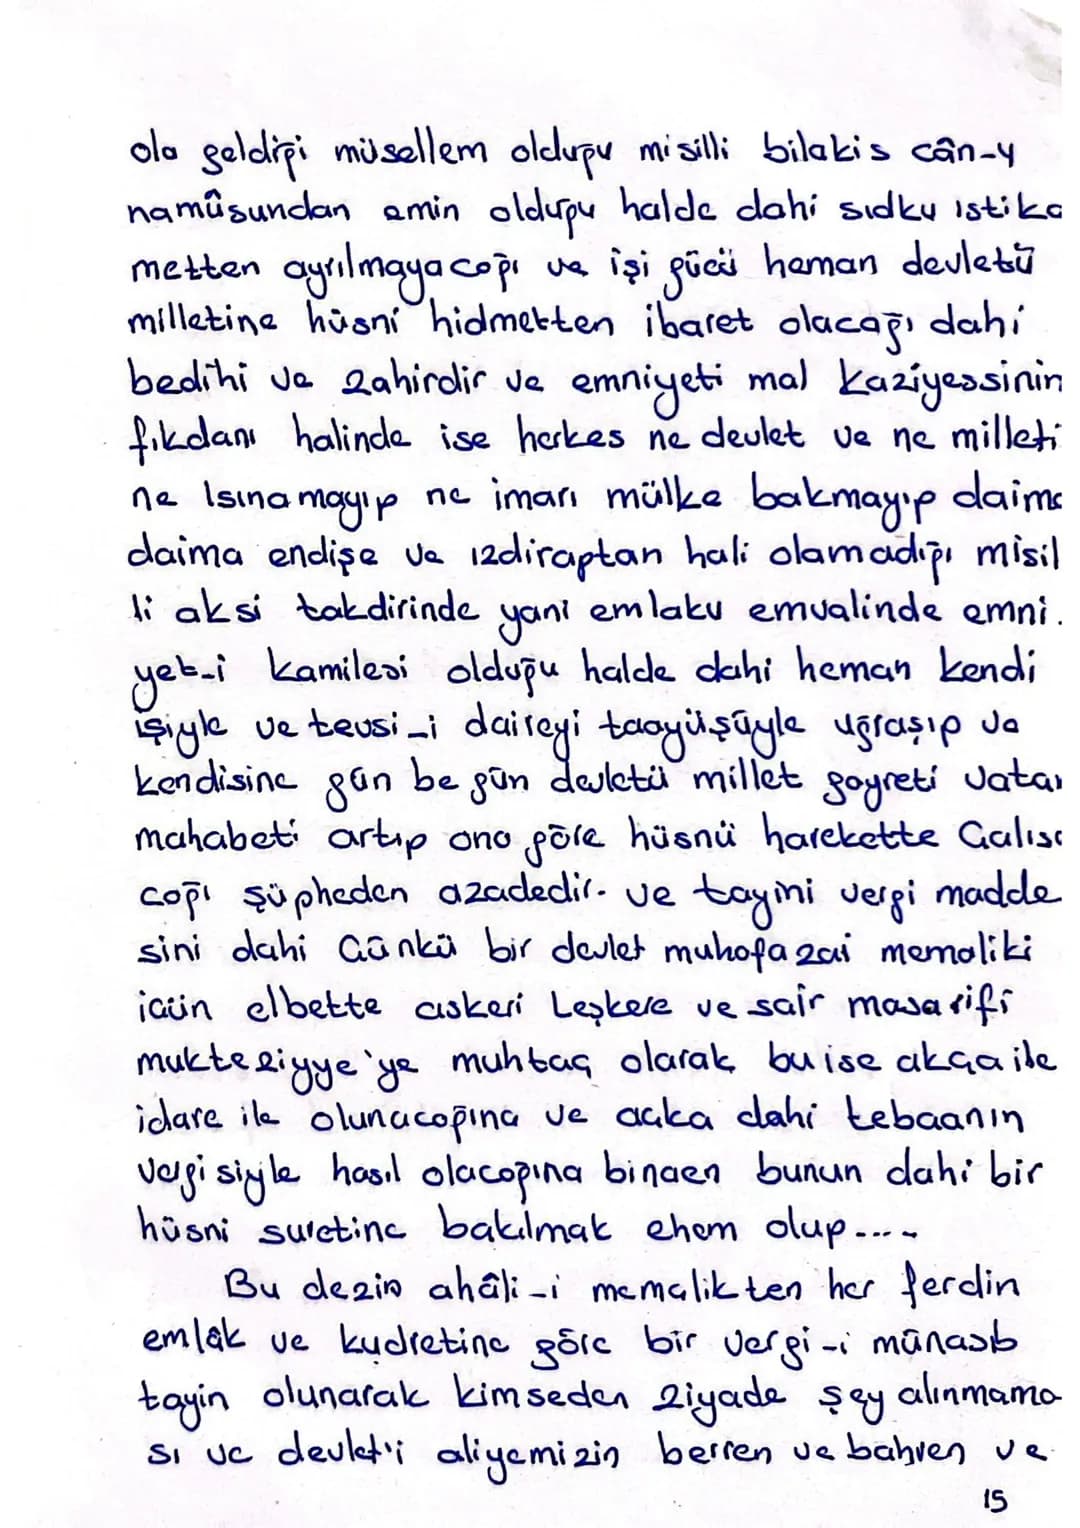 ola geldiği müsellem olduğu misilli bilakis cân-y
namûsundan emin olduğu halde dahi sıdku ıstika
metten ayrılmayacağı ve işi gücü heman devletü
milletine hüsni hidmetten ibaret olacağı dahi
bedihi ve zahirdir ve emniyeti mal kaziyessinin
fıkdanı halinde ise herkes ne devlet ve ne milleti
ne Isınamayıp ne imarı mülke bakmayıp daima
daima endişe ve ızdiraptan hali olamadığı misil
li aksi takdirinde yani emlaku emvalinde emni.
yet-i kamilesi olduğu halde dahi heman kendi
işiyle ve tevsi-i daireyi taayüşüyle uğraşıp ve
kendisine gün be gün devletü millet gayreti vatan
mahabeti artıp ona göre hüsnü harekette Çalışa
cağı şüpheden azadedir. ve tayini vergi madde
sini dahi Çünkü bir devlet muhofazai memaliki
içün elbette askeri Leşkere ve sair masarifi
mukteziyye'ye muhtaç olarak bu ise akça ile
idare ile olunacağına ve acka dahi tebaanın
vergisiyle hasıl olacağına binaen bunun dahi bir
hüsni suretine bakılmak ehem olup....
Bu dezin ahâli-i memalikten her ferdin
emlâk ve kudretine göre bir vergi-i münasıb
tayin olunarak kimseden ziyade şey alınmama
sı ve devlet'i aliyemizin berren ve bahren ve
15